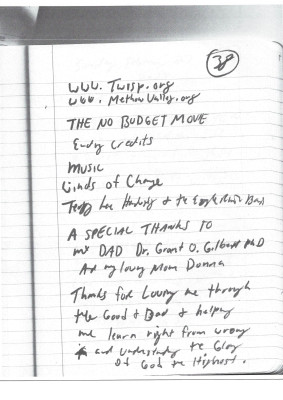 38
www. Twisp.org
www. Methow Valley.org
THE NO BUDGET MOVE
Ending Credits
Music
Winds of Change
Terry Lee & the Eagle Band
A SPECIAL THANKS TO
my DAD Dr. Grant O. Gilbert PhD
And my loving Mom Donna
Thanks for Loving me through
the Good & Bad & helping
me learn right from wrong
and understanding the Glory
of God the Highest.